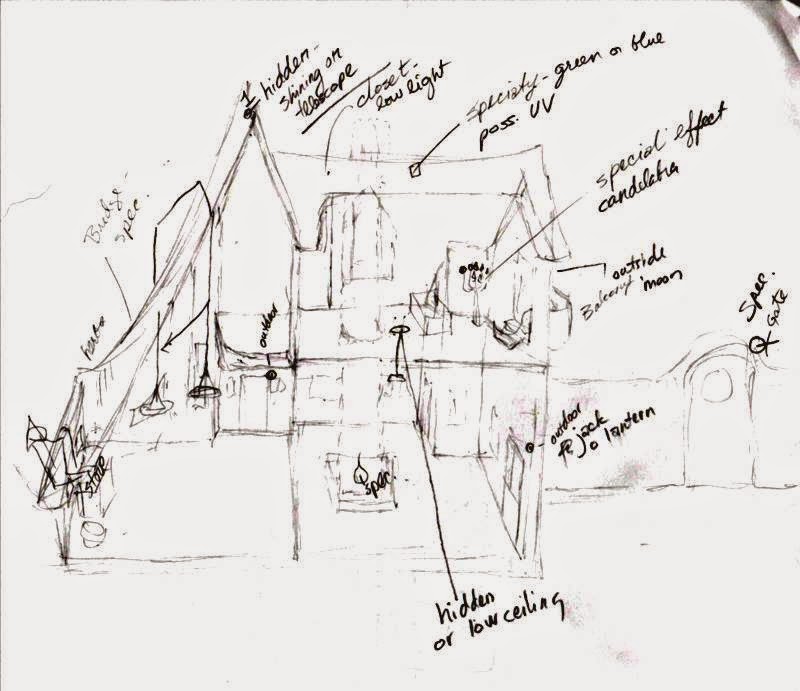 hidden-
shining on
telescope
closet-
low light
specialty - green or blue
poss. UV
special effect
candelabra
Bridge-
spec.
outside
Balcony moon
Spec.
Gate
outdoor
- outdoor
jack
o lantern
spec.
hidden
or low ceiling